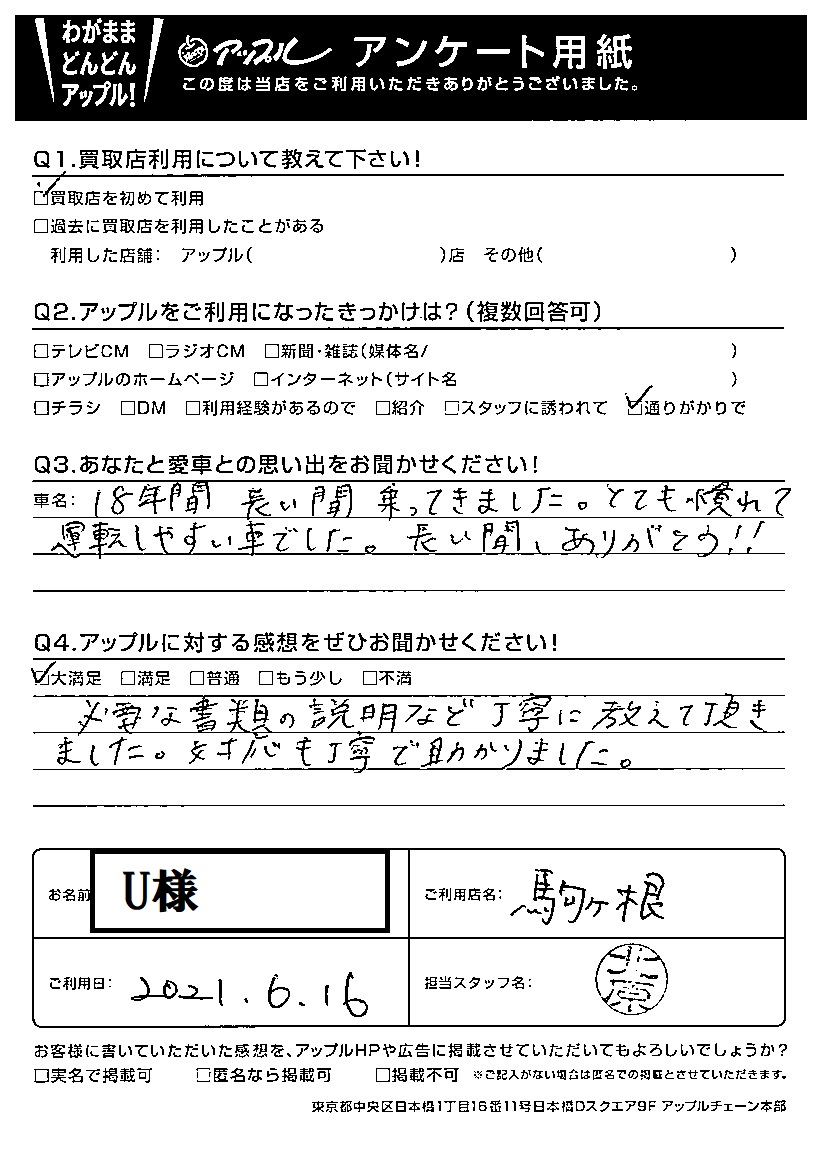 わがまま
どんどん
アップル!
アップル アンケート用紙
この度は当店をご利用いただきありがとうございました。
Q1.買取店利用について教えて下さい!
☑買取店を初めて利用
□過去に買取店を利用したことがある
利用した店舗: アップル( )店 その他( )
Q2.アップルをご利用になったきっかけは?(複数回答可)
□テレビCM □ラジオCM □新聞・雑誌(媒体名/ )
□アップルのホームページ □インターネット(サイト名 )
□チラシ □DM □利用経験があるので □紹介 □スタッフに誘われて ☑通りがかりで
Q3.あなたと愛車との思い出をお聞かせください!
車名: 18年間 長い間 乗ってきました。とても慣れて
運転しやすい車でした。長い間、ありがとう!!
Q4.アップルに対する感想をぜひお聞かせください!
☑大満足 □満足 □普通 □もう少し □不満
必要な書類の説明など丁寧に教えて頂き
ました。対応も丁寧で助かりました。
お名前 U様
ご利用店名: 駒ヶ根
ご利用日: 2021.6.16
担当スタッフ名: 北原
お客様に書いていただいた感想を、アップルHPや広告に掲載させていただいてもよろしいでしょうか?
□実名で掲載可 □匿名なら掲載可 □掲載不可 ※ご記入がない場合は匿名での掲載とさせていただきます。
東京都中央区日本橋1丁目16番11号日本橋Dスクエア9F アップルチェーン本部